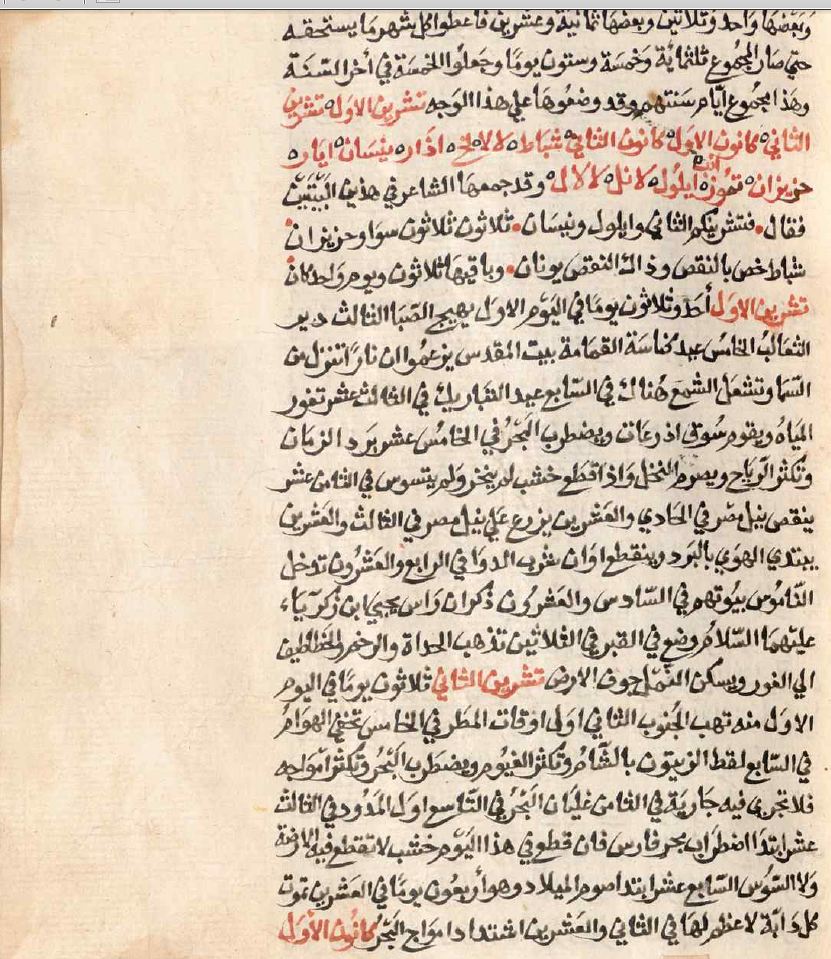 وبعضها واحد وثلاثين وبعضها ثمانية وعشرين فاعطوا كل شهر ما يستحقه
حتي صار المجموع ثلثماية وخمسة وستون يوما وجعلوا الخمسة في اخر السنة
وهذا المجموع ايام سنتهم وقد وضعوها علي هذا الوجه تشرين الاول تشرين
الثاني كانون الاول كانون الثاني شباط اذار نيسان ايار
حزيران تموز اب ايلول وقد جمعها الشاعر في هذين البيتين
فقال فتشرينكم الثاني وايلول ونيسان ثلاثون ثلاثون سوا وحزيران
شباط خص بالنقص وذاك النقص يونان وباقيها ثلاثون ويوم واحد كان
تشرين الاول أحد وثلاثون يوما في اليوم الاول يهيج الصبا الثالث دير
الثعالب الخامس عيد كناسة القمامة ببيت المقدس يزعموا ان نارا تنزل من
السما وتشعل الشمع هناك في السابع عيد التباريك في الثالث عشر تغور
المياه ويقوم سوق اذرعات ويضطرب البحر في الخامس عشر برد الزمان
وتكثر الرياح ويصرم النخل واذا قطع خشب لم ينخر ولم يتسوس في الثامن عشر
ينقص نيل مصر في الحادي والعشرين يزرع علي نيل مصر في الثالث والعشرين
يبتدي الهوي بالبرد وينقطع اوان شرب الدوا في الرابع والعشرون تدخل
الناموس بيوتهم في السادس والعشرون ذكران راس يحيي ابن زكرياء
عليهما السلام وضع في القبر في الثلاثين تذهب الحداة والرخم والخطاطيف
الي الغور ويسكن النمل جوف الارض تشرين الثاني ثلاثون يوما في اليوم
الاول منه تهب الجنوب الثاني اولي اوقات المطر في الخامس تختفي الهوام
في السابع لقط الزيتون بالشام وتكثر الغيوم ويضطرب البحر وتكثر امواجه
فلا تجري فيه جارية في الثامن غليان البحر في التاسع اول المدود في الثالث
عشر ابتدا اضطراب بحر فارس فان قطع في هذا اليوم خشب لا تقطع فيه الارضة
ولا السوس السابع عشر ابتدا صوم الميلاد وهو أربعون يوما في العشرين تموت
كل دابة لا عظم لها في الثاني والعشرين اشتداد امواج البحر كانون الأول